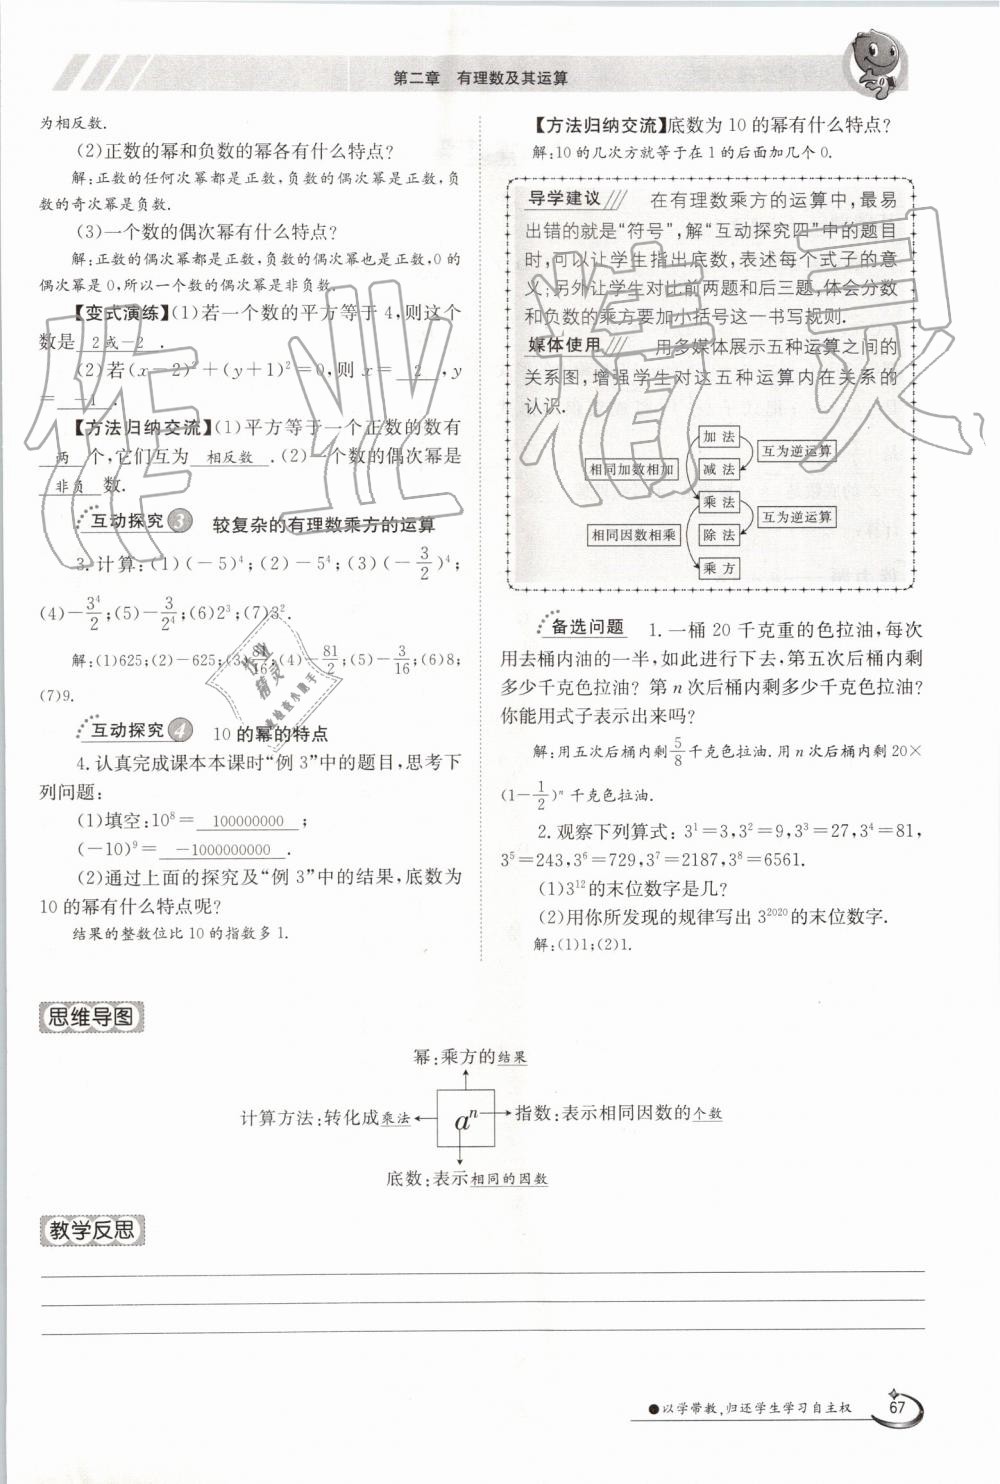 第二章　有理数及其运算
为相反数.
(2)正数的幂和负数的幂各有什么特点?
解:正数的任何次幂都是正数,负数的偶次幂是正数,负
数的奇次幂是负数.
(3)一个数的偶次幂有什么特点?
解:正数的偶次幂都是正数,负数的偶次幂也是正数,0的
偶次幂是0,所以一个数的偶次幂是非负数.
【变式演练】(1)若一个数的平方等于4,则这个
数是 2或-2 .
(2)若(x-2)²+(y+1)²=0,则x= 2 ,y
= -1 .
【方法归纳交流】(1)平方等于一个正数的数有
两 个,它们互为 相反数 .(2)一个数的偶次幂是
非负 数.
互动探究3　较复杂的有理数乘方的运算
3.计算:(1)(-5)⁴;(2)-5⁴;(3)(-3/2)⁴;
(4)-3⁴/2;(5)-3/2⁴;(6)2³;(7)3².
解:(1)625;(2)-625;(3)81/16;(4)-81/2;(5)-3/16;(6)8;
(7)9.
互动探究4　10的幂的特点
4.认真完成课本本课时“例3”中的题目,思考下
列问题:
(1)填空:10⁸= 100000000 ;
(-10)⁹= -1000000000 .
(2)通过上面的探究及“例3”中的结果,底数为
10的幂有什么特点呢?
结果的整数位比10的指数多1.
【方法归纳交流】底数为10的幂有什么特点?
解:10的几次方就等于在1的后面加几个0.
导学建议　在有理数乘方的运算中,最易
出错的就是“符号”,解“互动探究四”中的题目
时,可以让学生指出底数,表述每个式子的意
义;另外让学生对比前两题和后三题,体会分数
和负数的乘方要加小括号这一书写规则.
媒体使用　用多媒体展示五种运算之间的
关系图,增强学生对这五种运算内在关系的
认识.
加法
互为逆运算
相同加数相加
减法
乘法
互为逆运算
相同因数相乘
除法
乘方
备选问题　1.一桶20千克重的色拉油,每次
用去桶内油的一半,如此进行下去,第五次后桶内剩
多少千克色拉油?第n次后桶内剩多少千克色拉油?
你能用式子表示出来吗?
解:用五次后桶内剩5/8千克色拉油.用n次后桶内剩20×
(1-1/2)ⁿ千克色拉油.
2.观察下列算式:3¹=3,3²=9,3³=27,3⁴=81,
3⁵=243,3⁶=729,3⁷=2187,3⁸=6561.
(1)3¹²的末位数字是几?
(2)用你所发现的规律写出3²⁰²⁰的末位数字.
解:(1)1;(2)1.
思维导图
幂:乘方的结果
计算方法:转化成乘法
aⁿ
指数:表示相同因数的个数
底数:表示相同的因数
教学反思
●以学带教,归还学生学习自主权
67
作业精灵